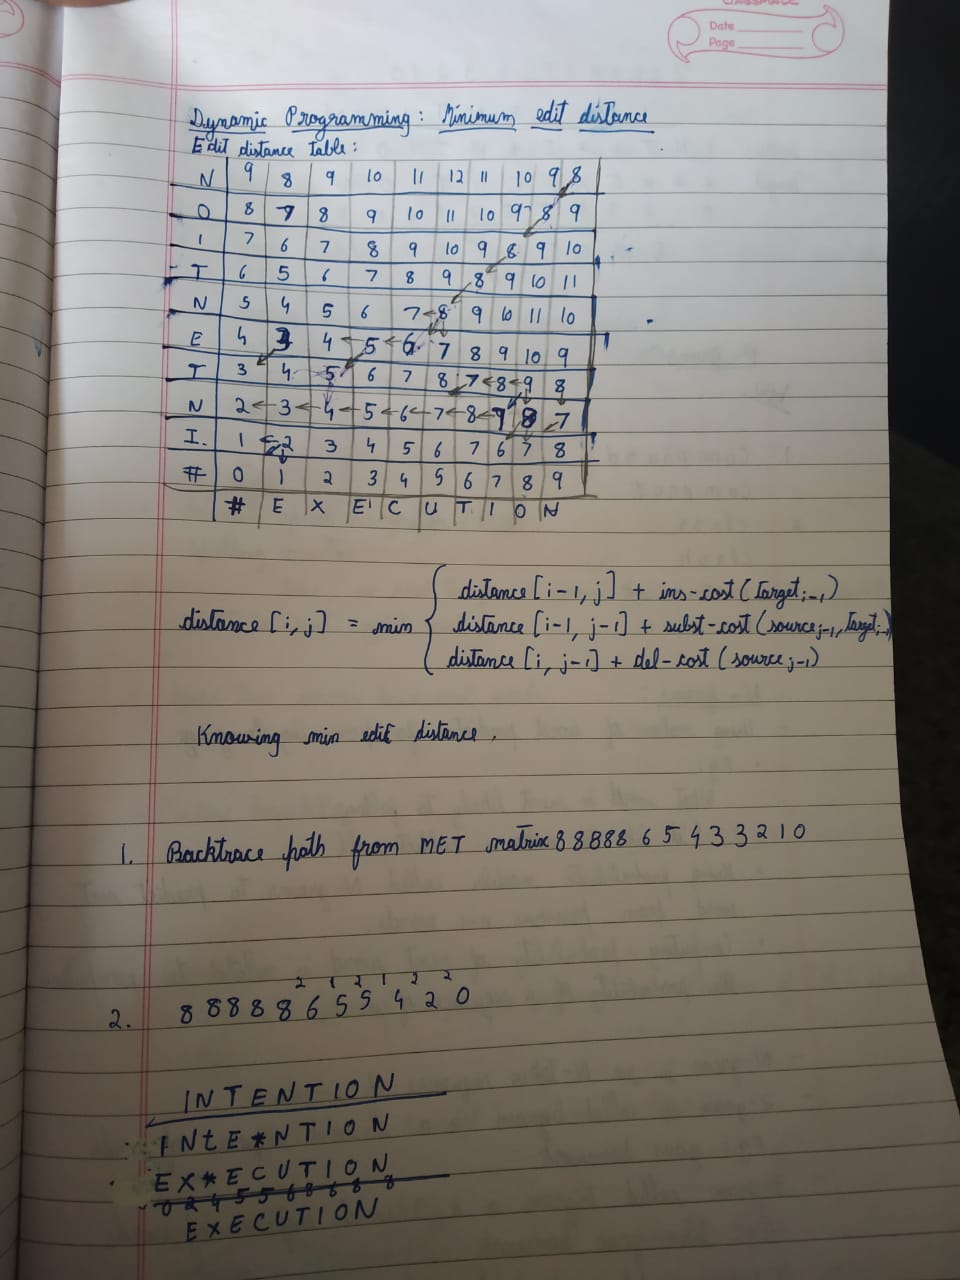 CLASSMATE
Date
Page
Dynamic Programming: Minimum edit distance
Edit distance table:
N 9 8 9 10 11 12 11 10 9 8
O 8 7 8 9 10 11 10 9 8 9
I 7 6 7 8 9 10 9 8 9 10
T 6 5 6 7 8 9 8 9 10 11
N 5 4 5 6 7 8 9 10 11 10
E 4 3 4 5 6 7 8 9 10 9
T 3 4 5 6 7 8 7 8 9 8
N 2 3 4 5 6 7 8 9 8 7
I. 1 2 3 4 5 6 7 6 7 8
# 0 1 2 3 4 5 6 7 8 9
# E X E C U T I O N
distance [i-1, j] + ins-cost (Target i-1)
distance [i, j] = min distance [i-1, j-1] + subst-cost (source j-1, Target i-1)
distance [i, j-1] + del-cost (source j-1)
Knowing min edit distance.
1. Backtrace path from MET matrix 8 8 8 8 8 6 5 4 3 3 2 1 0
2 1 2 1 2 2
2. 8 8 8 8 8 6 5 5 4 2 0
INTENTION
INtE*NTION
EX*ECUTION
0 2 4 5 5 6 8 8 8 8
EXECUTION